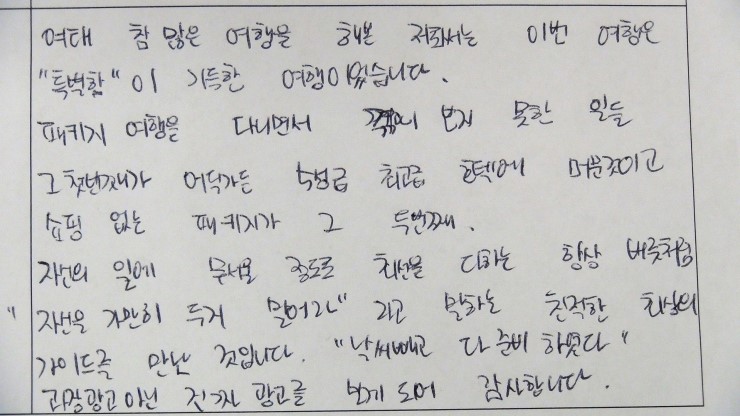 여태 참 많은 여행을 해본 저희와서는 이번 여행은
"특별함"이 가득한 여행이었습니다.
패키지 여행을 다니면서 겪어 보지 못한 일들
그 첫번째가 어딜가든 5성급 최고급 호텔에 머문것이고
쇼핑 없는 패키지가 그 두번째.
자신의 일에 무서울 정도로 최선을 다하는 항상 버릇처럼
"자신을 가만히 두지 말어라" 라고 말하는 친절한 최상의
가이드를 만난 것입니다. "날씨빼고 다 준비 하였다"
과장광고 아닌 진짜 광고를 보게 되어 감사합니다.